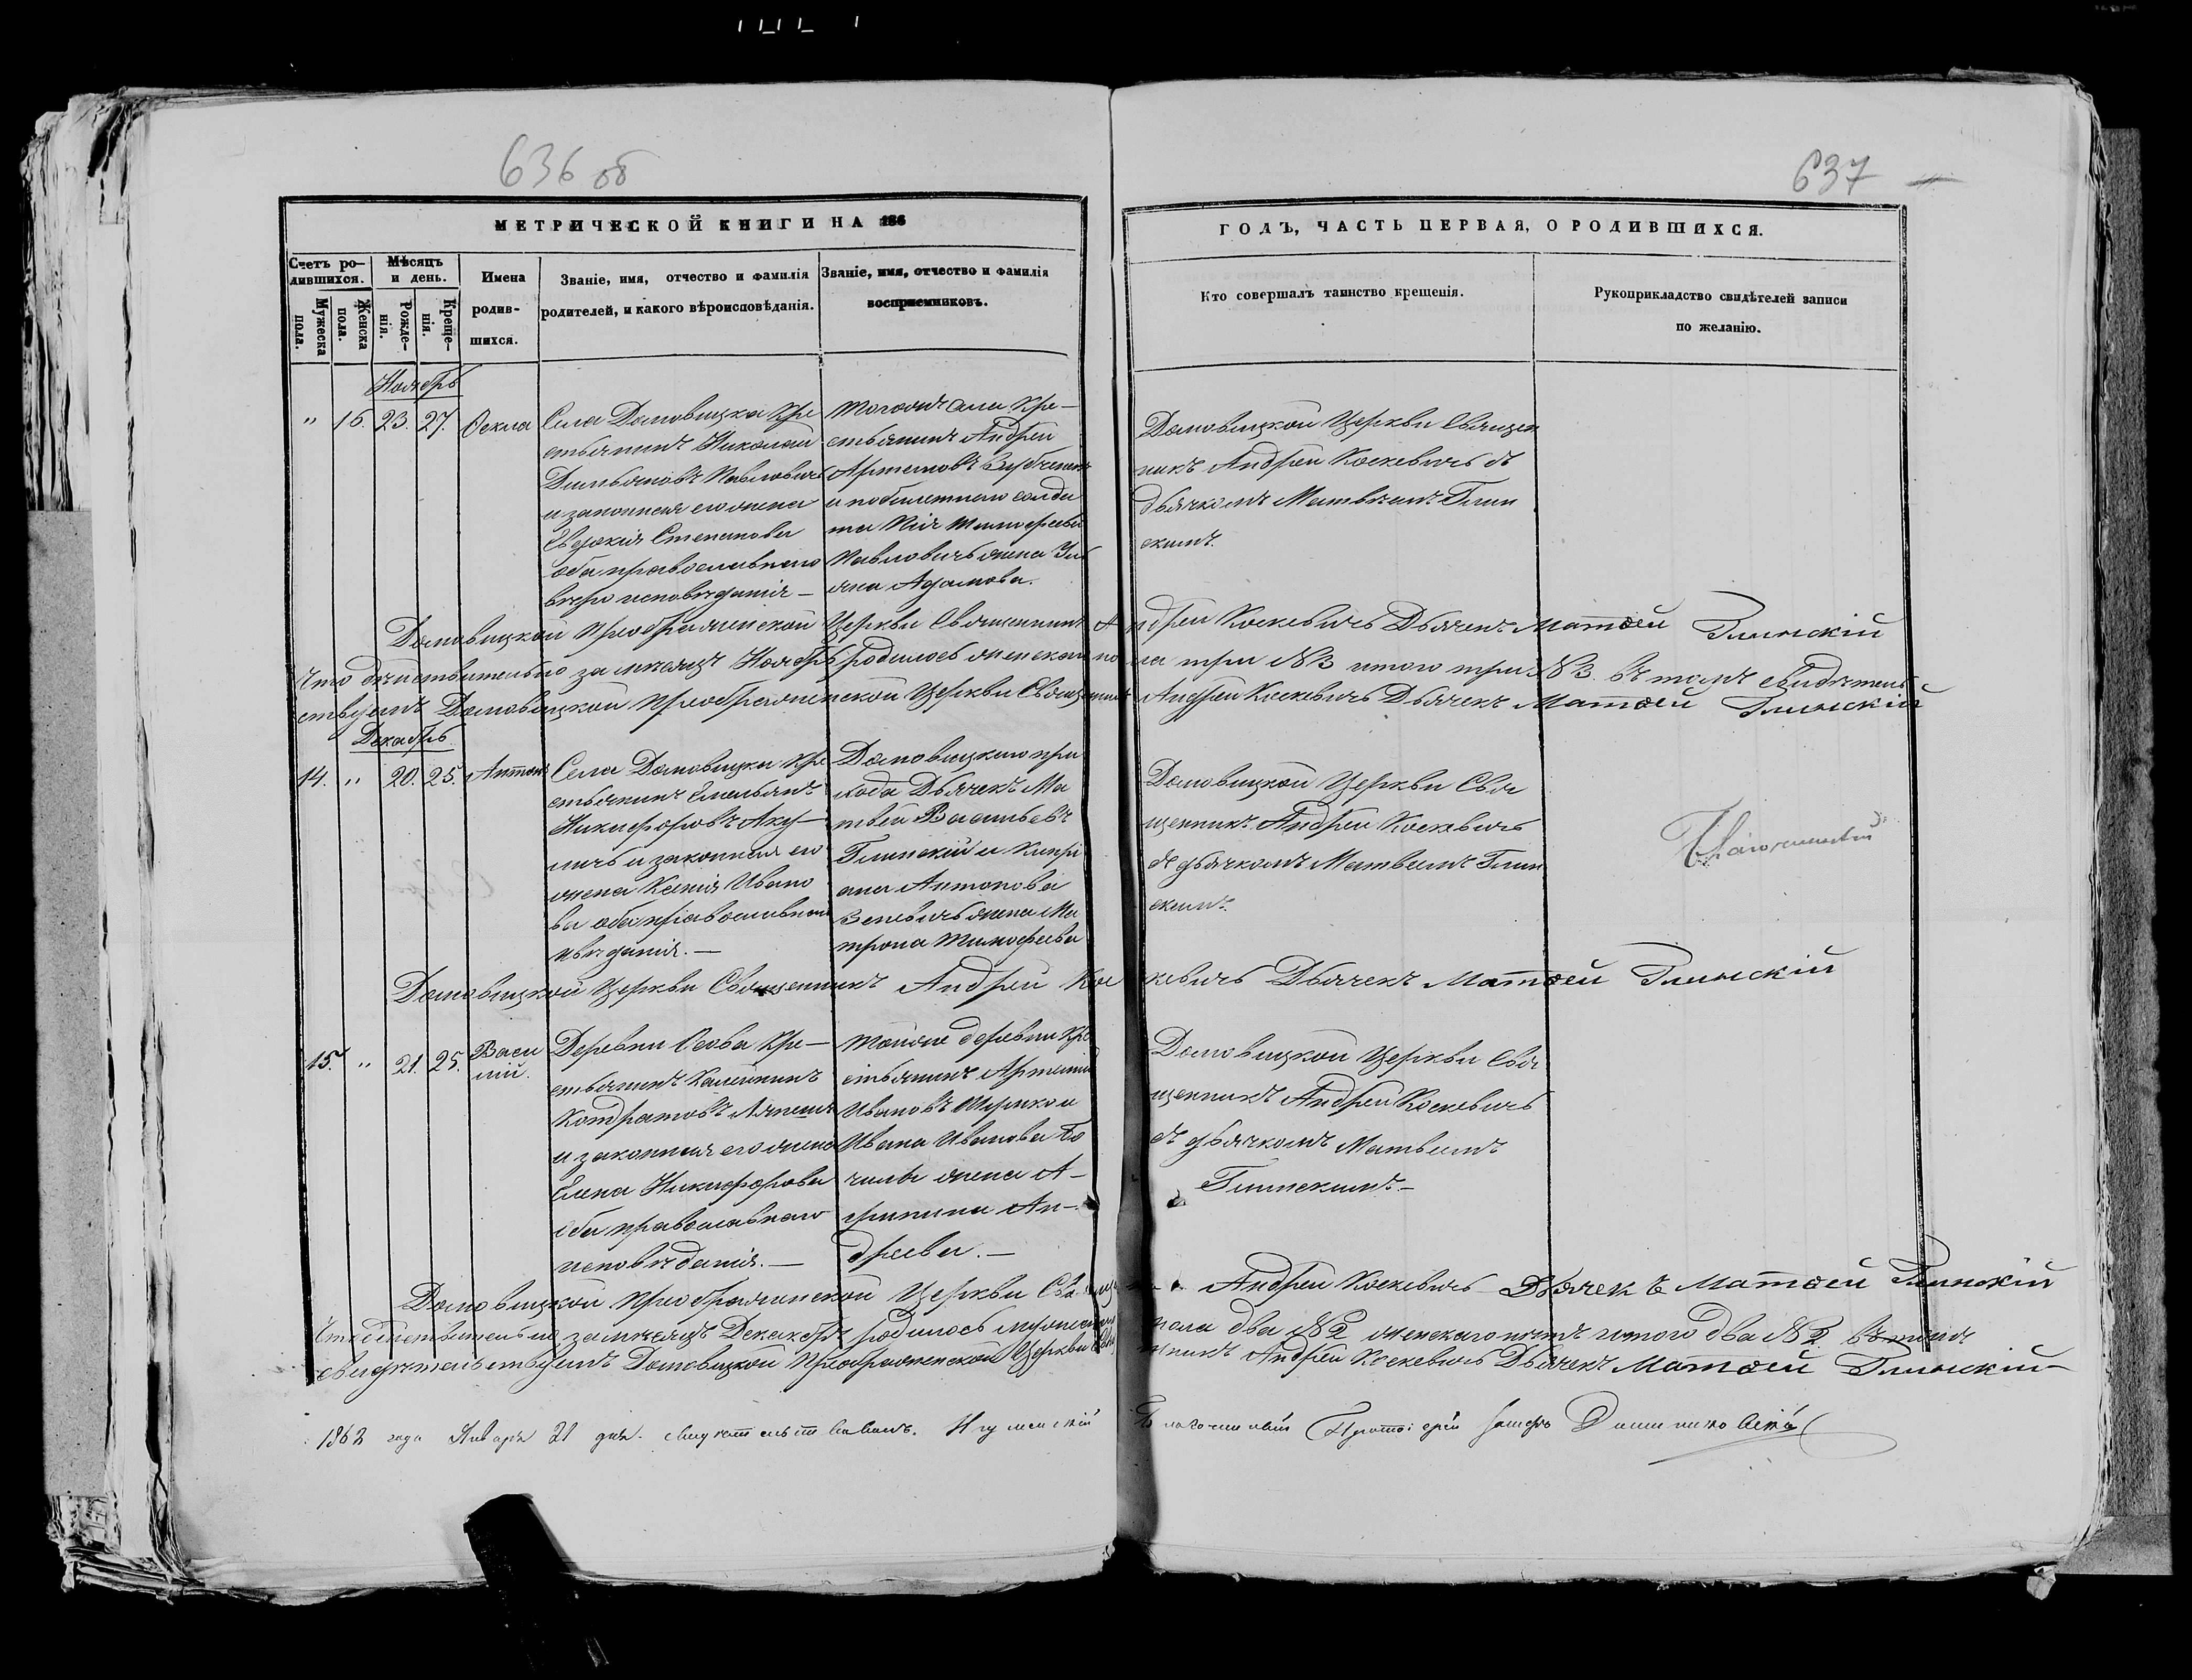 636 об
637
МЕТРИЧЕСКОЙ КНИГИ НА 186
ГОДЪ, ЧАСТЬ ПЕРВАЯ, О РОДИВШИХСЯ.
Счетъ ро-
дившихся.
Мужеска пола.
Женска пола.
Мѣсяцъ
и день.
Рожде-
нія.
Креще-
нія.
Имена
родив-
шихся.
Званіе, имя, отчество и фамилія
родителей, и какого вѣроисповѣданія.
Званіе, имя, отчество и фамилія
восприемниковъ.
Кто совершалъ таинство крещенія.
Рукоприкладство свидѣтелей записи
по желанію.
Ноябрь
" 16. 23. 27. Ѳекла
Села Домовицка Кре
стьянинъ Николай
Демьяновъ Павловичъ
и законная его жена
Евдокія Степанова
оба православнаго
вѣро исповѣданія —
Тогожъ села Кре—
стьянинъ Андрей
Артемовъ
и по билетнаго солда
та Тимофеева
Павловичъ жена Уль
яна Адамова.
Домовицкой Церкви Священ
никъ Андрей Коскевичъ съ
дьячкомъ Матвѣемъ Глин
скимъ.
Домовицкой Преображенской Церкви Священникъ Андрей Коскевичъ Дьячекъ Матѳей Глинскій
Что дѣйствительно за мѣсяцъ Ноябрь родилось женскаго пола три №3 итого три №3. въ томъ свидѣтель
ствуемъ Домовицкой Преображенской Церкви Священникъ Андрей Коскевичъ Дьячекъ Матѳей Глинскій
Декабрь.
14. " 20. 25. Антонъ
Села Домовицка Кре
стьянинъ Емельянъ
Никифоровъ Аку—
личъ и законная его
жена Ксенія Ивано
ва оба православнаго
исповѣданія. —
Домовицкаго при
хода Дьячекъ Ма
твей Васильевъ
Глинскій и Кипрі
ана Антонова
жена Ма
трона Тимофеева
Домовицкой Церкви Свя
щенникъ Андрей Коскевичъ
съ дьячкомъ Матвеемъ Глин
скимъ.
Благочинный
Домовицкой Церкви Священникъ Андрей Коскевичъ Дьячекъ Матѳей Глинскій
15. " 21. 25. Васи
лій.
Деревни Осова Кре—
стьянинъ
Кондратовъ
и законная его жена
Елена Никифорова
оба православнаго
исповѣданія. —
Тойже деревни Кре
стьянинъ Артемій
Ивановъ и
Ивана Иванова Бо
жена А—
грипина Ан—
дреева. —
Домовицкой Церкви Свя
щенникъ Андрей Коскевичъ
съ дьячкомъ Матвеемъ
Глинскимъ. —
Домовицкой Преображенской Церкви Священникъ Андрей Коскевичъ Дьячекъ Матѳей Глинскій
Что дѣйствительно за мѣсяцъ Декабрь родилось мужескаго пола два №2 женскаго нѣтъ итого два №2. въ томъ
свидѣтельствуемъ Домовицкой Преображенской Церкви Священникъ Андрей Коскевичъ Дьячекъ Матѳей Глинскій
1862 года Января 21 дня. свидѣтельствовалъ. Игуменскій Благочинный Протоіерей